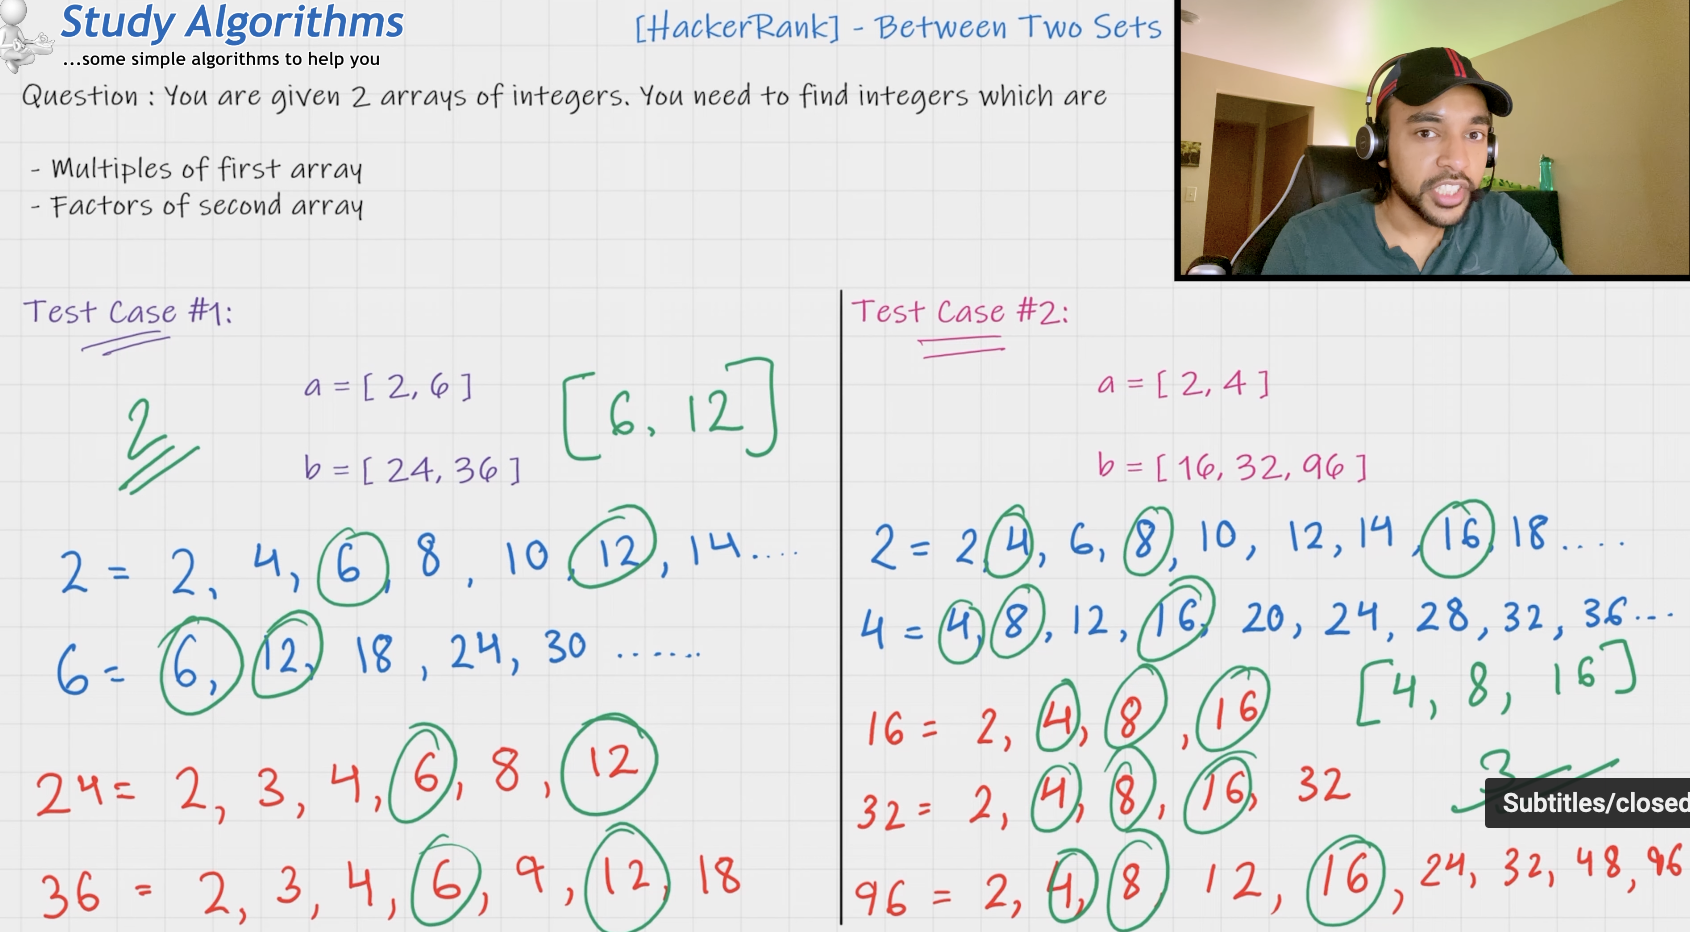 Study Algorithms
...some simple algorithms to help you
[HackerRank] - Between Two Sets
Question : You are given 2 arrays of integers. You need to find integers which are
- Multiples of first array
- Factors of second array
Test Case #1:
a = [ 2, 6 ]
[6, 12]
2
b = [ 24, 36 ]
2 = 2, 4, 6, 8, 10, 12, 14....
6 = 6, 12, 18, 24, 30 ......
24 = 2, 3, 4, 6, 8, 12
36 = 2, 3, 4, 6, 9, 12, 18
Test Case #2:
a = [ 2, 4 ]
b = [ 16, 32, 96 ]
2 = 2, 4, 6, 8, 10, 12, 14, 16, 18....
4 = 4, 8, 12, 16, 20, 24, 28, 32, 36...
[4, 8, 16]
16 = 2, 4, 8, 16
3
Subtitles/closed
32 = 2, 4, 8, 16, 32
96 = 2, 4, 8, 12, 16, 24, 32, 48, 96